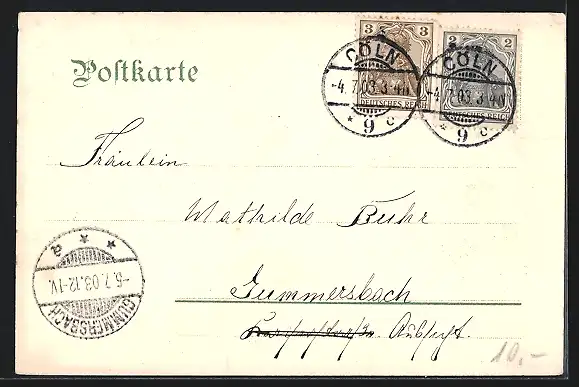 3 3
DEUTSCHES REICH
2 2
DEUTSCHES REICH
CÖLN
-4.7.03.3-4N
* 9 c
CÖLN
-4.7.03.3-4N
* 9 c
Postkarte
Fräulein
Mathilde Buhr
Gummersbach
* * a
-5.7.03.12-1V.
GUMMERSBACH
10,-